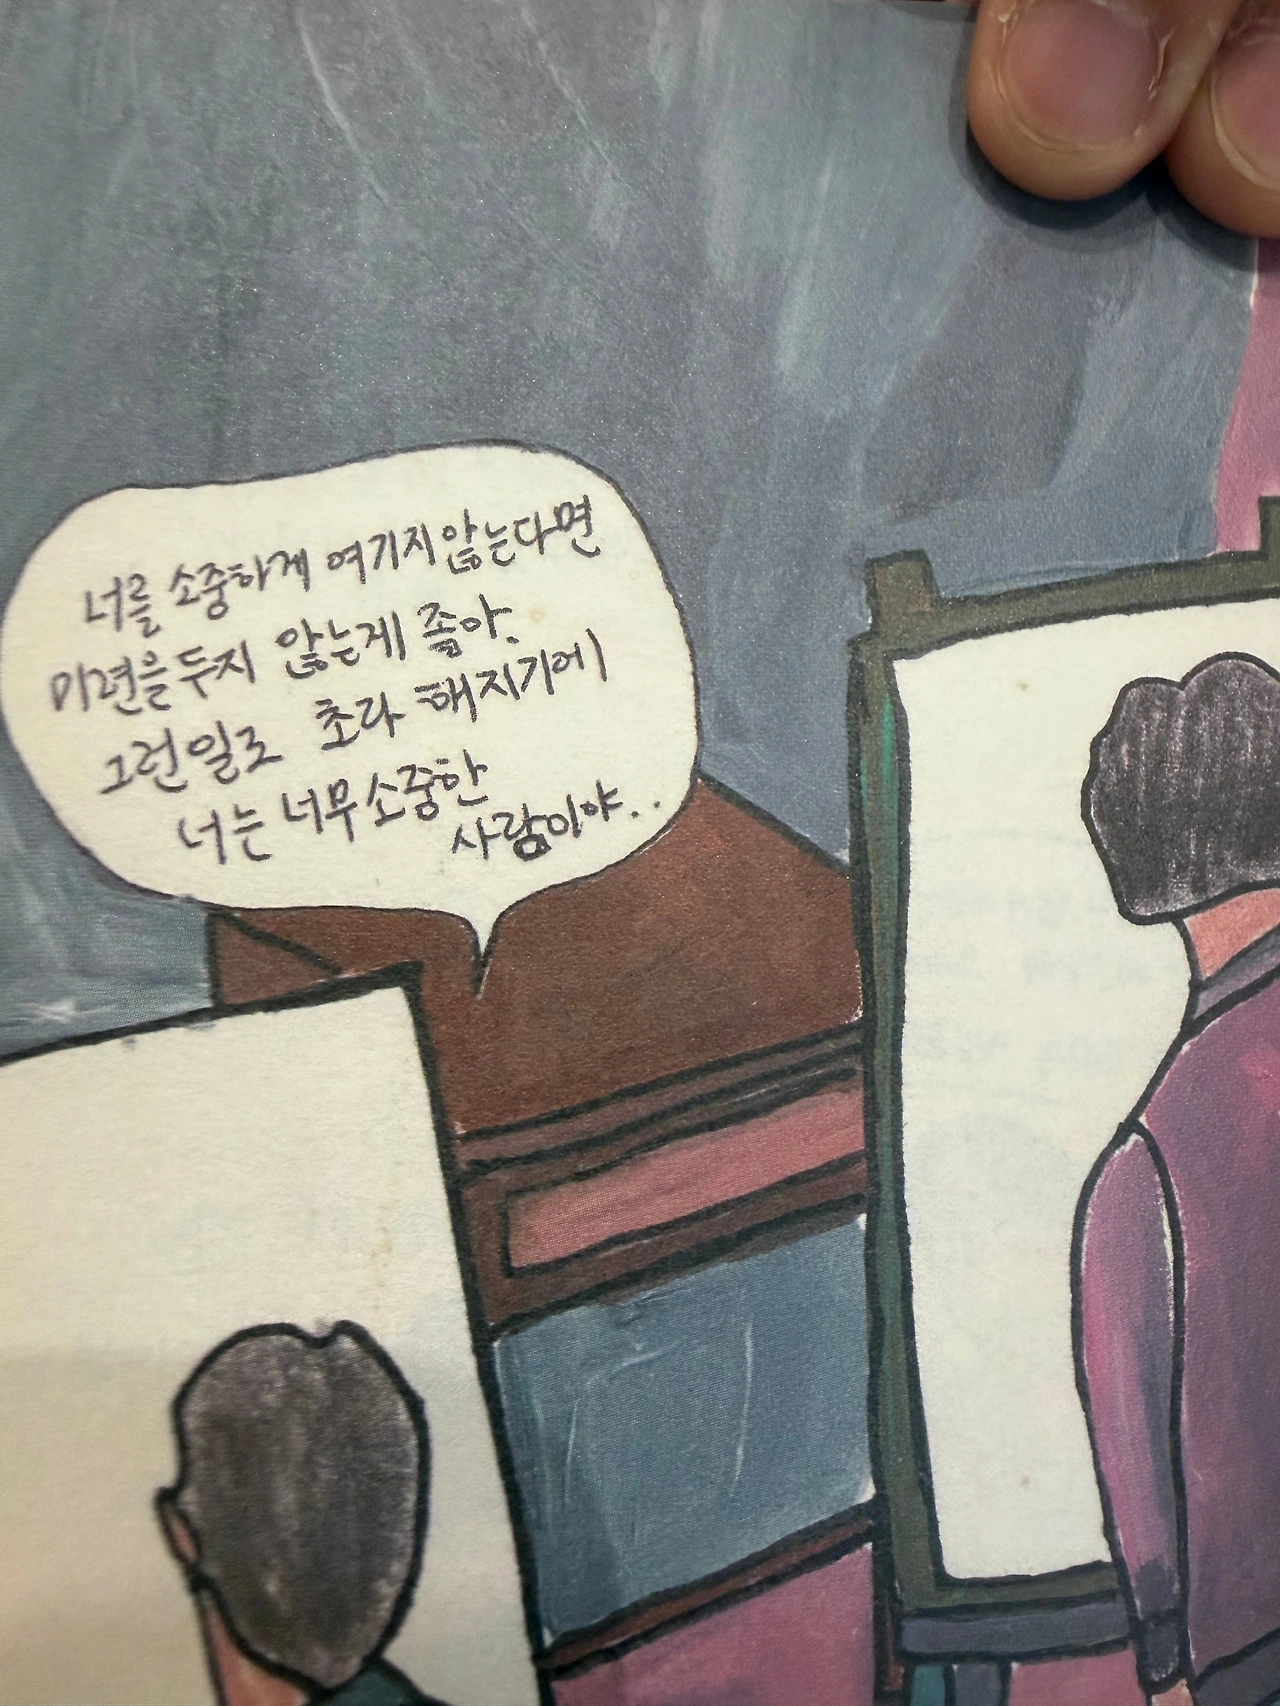 너를 소중하게 여기지 않는다면
미련을 두지 않는게 좋아.
그런일로 초라해지기에
너는 너무 소중한
사람이야..